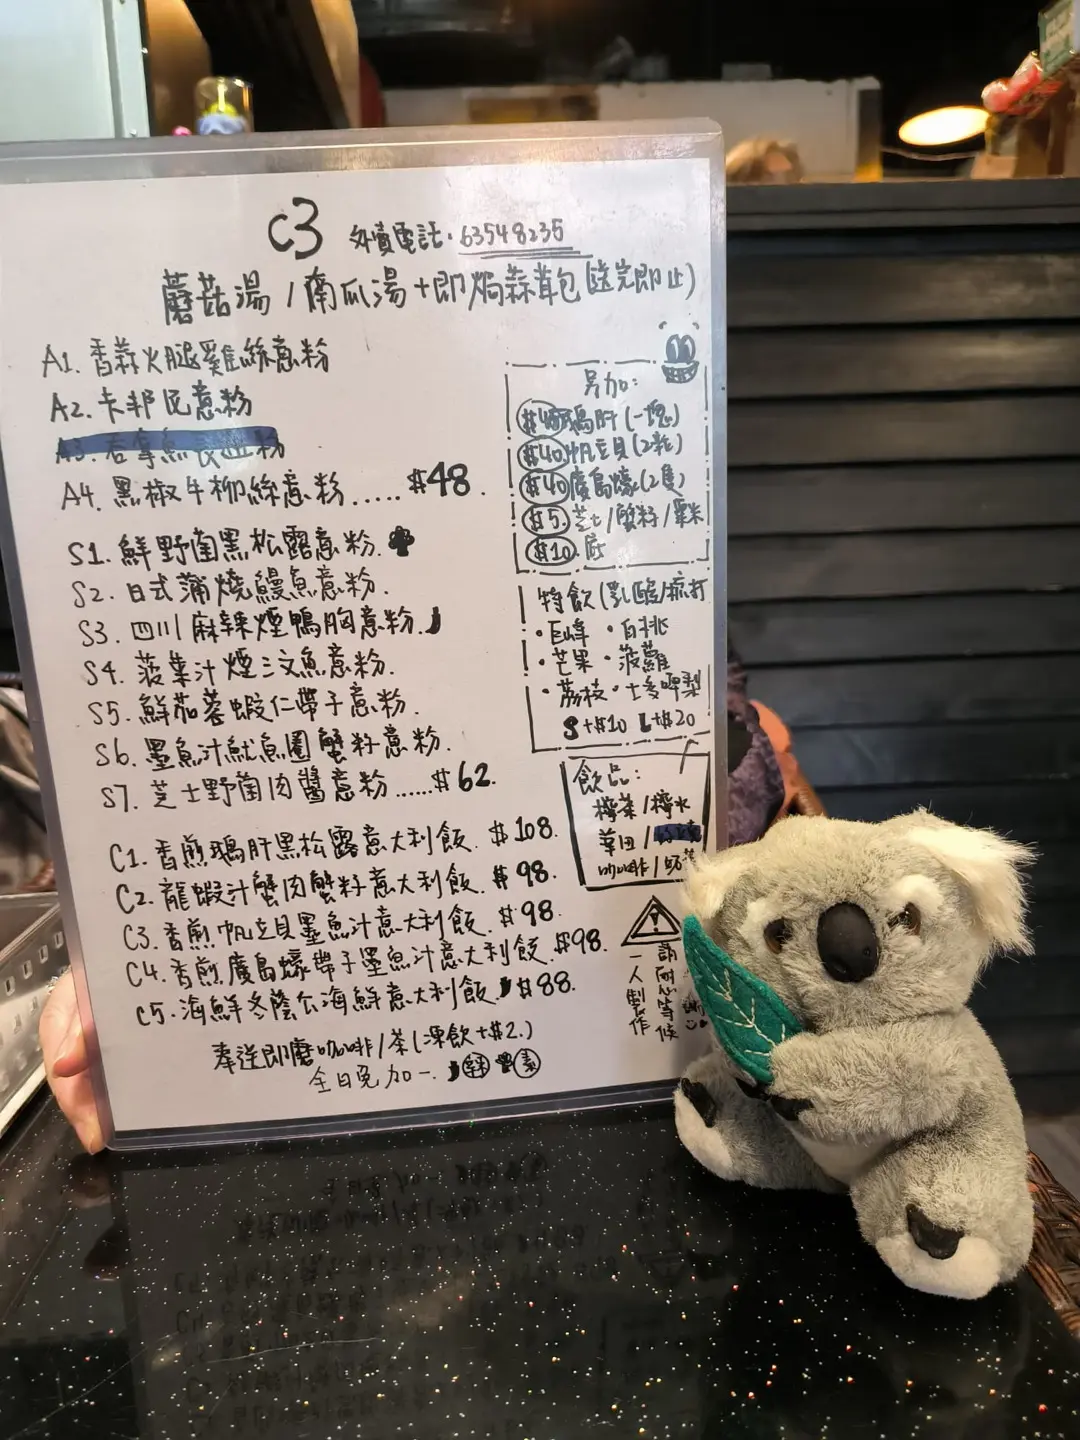 C3 外賣電話·63548235
蘑菇湯 / 南瓜湯 + 即焗蒜茸包 (送完即止)
A1. 香蒜火腿雞絲意粉
A2. 卡邦尼意粉
A3. 吞拿魚
A4. 黑椒牛柳絲意粉..... $48.
S1. 鮮野菌黑松露意粉.
S2. 日式蒲燒鰻魚意粉.
S3. 四川麻辣煙鴨胸意粉.
S4. 菠菜汁煙三文魚意粉.
S5. 鮮茄蓉蝦仁帶子意粉.
S6. 墨魚汁魷魚圈蟹籽意粉.
S7. 芝士野菌肉醬意粉......$62.
C1. 香煎鵝肝黑松露意大利飯. $108.
C2. 龍蝦汁蟹肉蟹籽意大利飯. $98.
C3. 香煎帆立貝墨魚汁意大利飯. $98.
C4. 香煎廣島蠔帶子墨魚汁意大利飯. $98.
C5. 海鮮冬蔭公海鮮意大利飯. $88.
奉送即磨咖啡/茶(凍飲+$2.)
全日免加一. 辣 素
另加:
鵝肝(一塊)
$40 帆立貝(2粒)
$40 廣島蠔(2隻)
$5. 芝士/蟹籽/粟米
$10.
特飲(乳酸/梳打
·巨峰 ·白桃
·芒果 ·菠蘿
·荔枝 ·士多啤梨
S+$10 L+$20
飲品:
檸茶/檸水
咖啡/
請耐心等候
一人製作